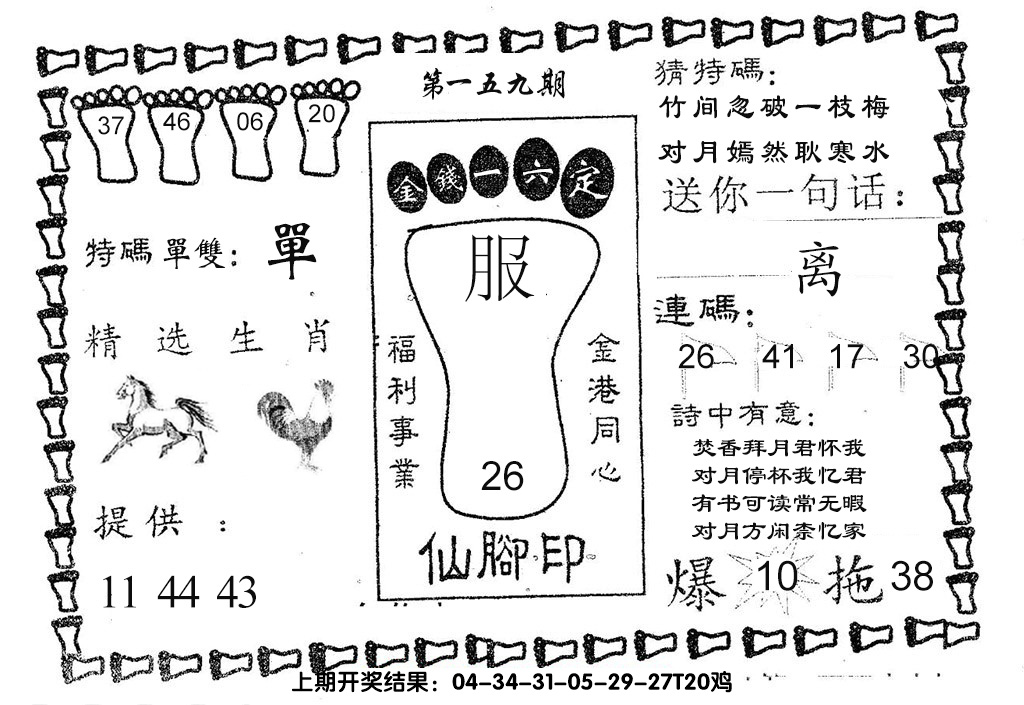 第一五九期
37 46 06 20
特碼單雙：單
精选生肖
提供：
11 44 43
金錢一六定
服
福利事業
金港同心
26
仙腳印
猜特碼：
竹间忽破一枝梅
对月嫣然耿寒水
送你一句话：
离
連碼：
26 41 17 30
詩中有意：
焚香拜月君怀我
对月停杯我忆君
有书可读常无暇
对月方闲柰忆家
爆 10 拖 38
上期开奖结果：04-34-31-05-29-27T20鸡